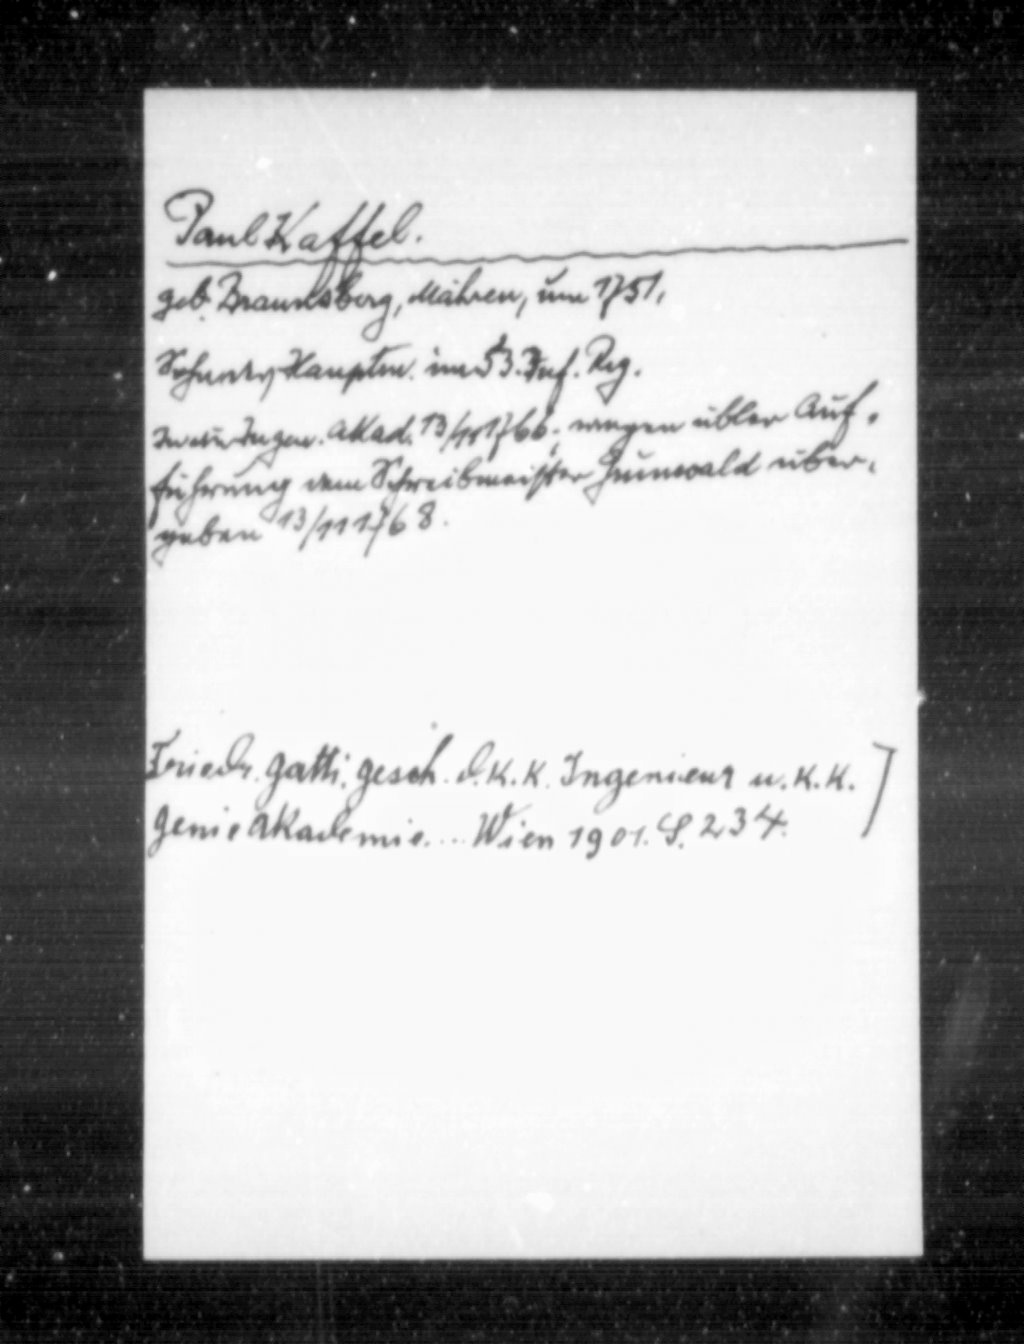 Paul Kaffel.
geb. Braunsberg, Mähren, um 1751,
Hauptm. im 53. Inf. Reg.
In die Ingen. Akad. 13/11 1766; wegen übler Auf-
führung dem Schreibmeister Grünwald über-
geben 13/11 1768.
Friedr. Gatti, Gesch. d. K. K. Ingenieur u. K. K. ]
Genie Akademie.... Wien 1901. S. 234.